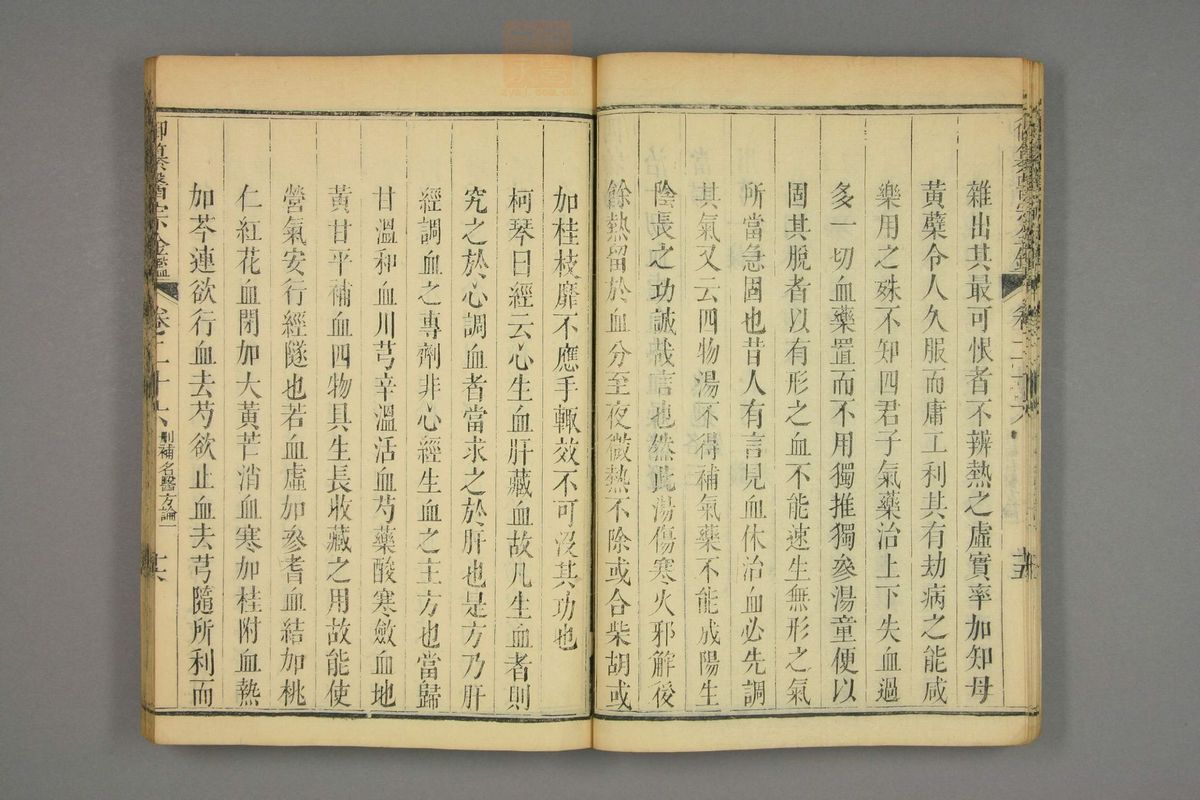 雜出其最可恨者不辨熱之虛實率加知母
黃蘗令人久服而庸工利其有劫病之能咸
樂用之殊不知四君子氣藥治上下失血過
多一切血藥置而不用獨推獨參湯童便以
固其脫者以有形之血不能速生無形之氣
所當急固也昔人有言見血休治血必先調
其氣又云四物湯不得補氣藥不能成陽生
陰長之功誠哉言也然此湯傷寒火邪解後
餘熱留於血分至夜微熱不除或合柴胡或
加桂枝靡不應手輙效不可沒其功也
柯琴曰經云心生血肝藏血故凡生血者則
究之於心調血者當求之於肝也是方乃肝
經調血之專劑非心經生血之主方也當歸
甘溫和血川芎辛溫活血芍藥酸寒斂血地
黃甘平補血四物具生長收藏之用故能使
營氣安行經隧也若血虛加參耆血結加桃
仁紅花血閉加大黃芒消血寒加桂附血熱
加芩連欲行血去芍欲止血去芎隨所利而
御纂醫宗金鑑
卷二十六
刪補名醫方論一